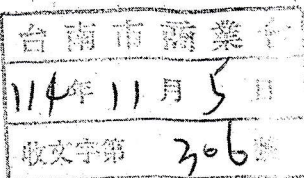 台南市商業會
114年11月5日
收文字第306號